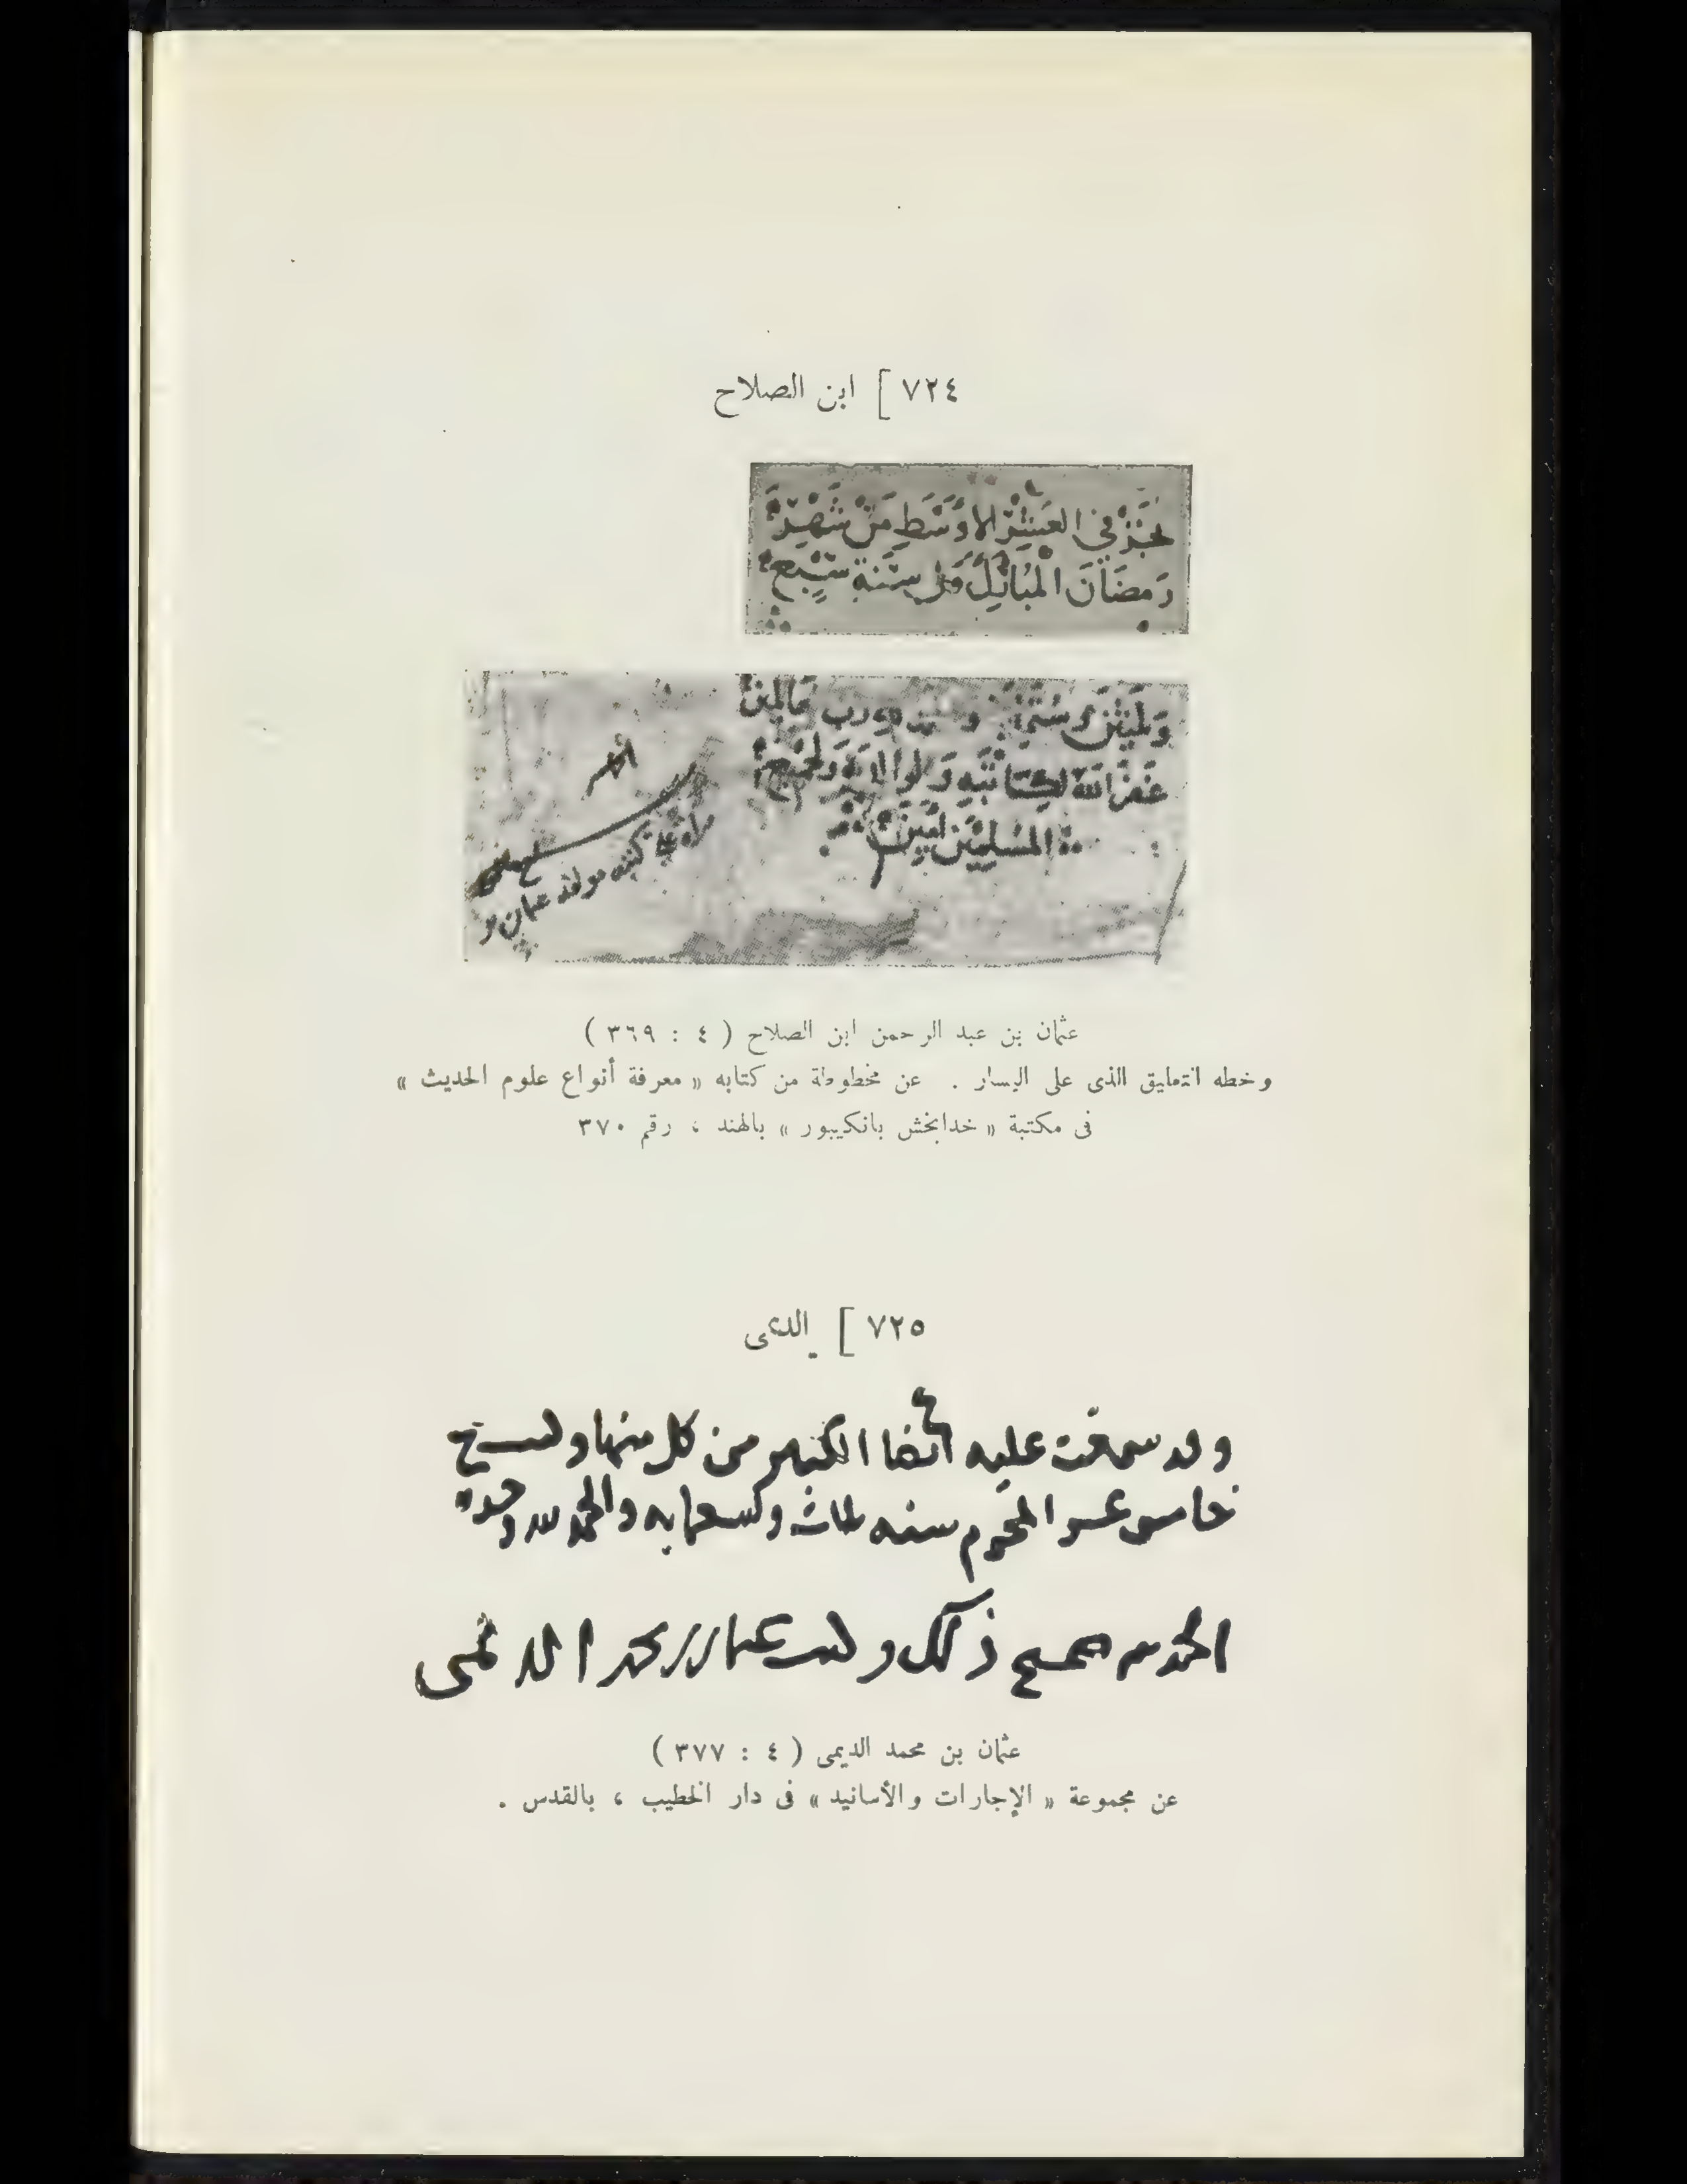 ٧٢٤ [ ابن الصلاح
نجز في العشر الاوسط من شهر
رمضان المبارك من سنة سبع
وثلثين وستمائة والحمد لله رب العالمين
غفر الله لكاتبه ولوالديه ولجميع
المسلمين امين
كتبه مولفه عثمان بن
عثمان بن عبد الرحمن ابن الصلاح ( ٤ : ٣٦٩ )
وخطه التعليق الذى على اليسار . عن مخطوطة من كتابه « معرفة أنواع علوم الحديث »
فى مكتبة « خدابخش بانكيبور » بالهند ، رقم ٣٧٠
٧٢٥ [ الديمى
وقد سمعت عليه ايضا الكثير من كل منها وكتب في
خامس عشر المحرم سنه ثلاث وتسعمايه والحمد لله وحده
الحمد لله صحيح ذلك وكتب عثمان بن محمد الديمى
عثمان بن محمد الديمى ( ٤ : ٣٧٧ )
عن مجموعة « الإجارات والأسانيد » فى دار الخطيب ، بالقدس .